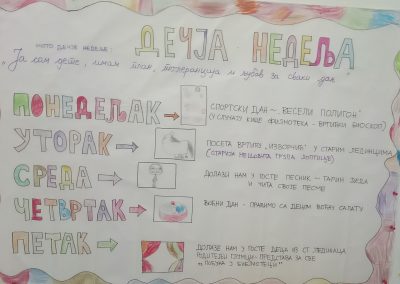 МОТО ДЕЧЈЕ НЕДЕЉЕ:
ДЕЧЈА НЕДЕЉА
„Ја сам дете, имам план, толеранција и љубав за сваки дан"
ПОНЕДЕЉАК → СПОРТСКИ ДАН - „ВЕСЕЛИ ПОЛИГОН"
(У СЛУЧАЈУ КИШЕ ФИСКУЛТУРА - ВРТИЋКИ БИОСКОП)
УТОРАК → ПОСЕТА ВРТИЋУ „ИЗВОРЧИЋ" У СТАРИМ ЛЕДИНЦИМА
(СТАРИЈА МЕШОВИТА ГРУПА ЛОПТИЦЕ)
СРЕДА → ДОЛАЗИ НАМ У ГОСТЕ ПЕСНИК -
И ЧИТА СВОЈЕ ПЕСМЕ
ЧЕТВРТАК → ВОЋНИ ДАН - ПРАВИМО СА ДЕЦОМ ВОЋНУ САЛАТУ
ПЕТАК → ДОЛАЗЕ НАМ У ГОСТЕ ДЕЦА ИЗ СТ. ЛЕДИНАЦА
РОДИТЕЉИ ГЛУМЦИ - ПРЕДСТАВА ЗА СВЕ
„ПОБУНА У БИБЛИОТЕЦИ"